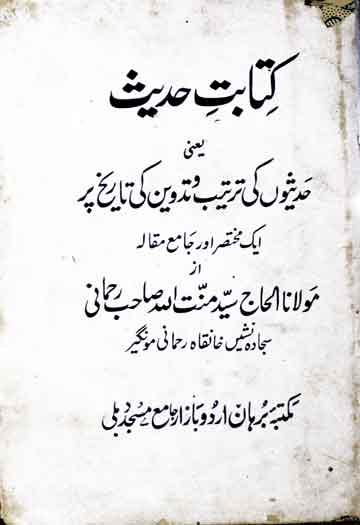 کتابتِ حدیث
یعنی
حدیثوں کی ترتیب و تدوین کی تاریخ پر
ایک مختصر اور جامع مقالہ
از
مولانا الحاج سید منت اللہ صاحب رحمانی
سجادہ نشیں خانقاہ رحمانی مونگیر
مکتبہ برہان اردو بازار جامع مسجد دہلی